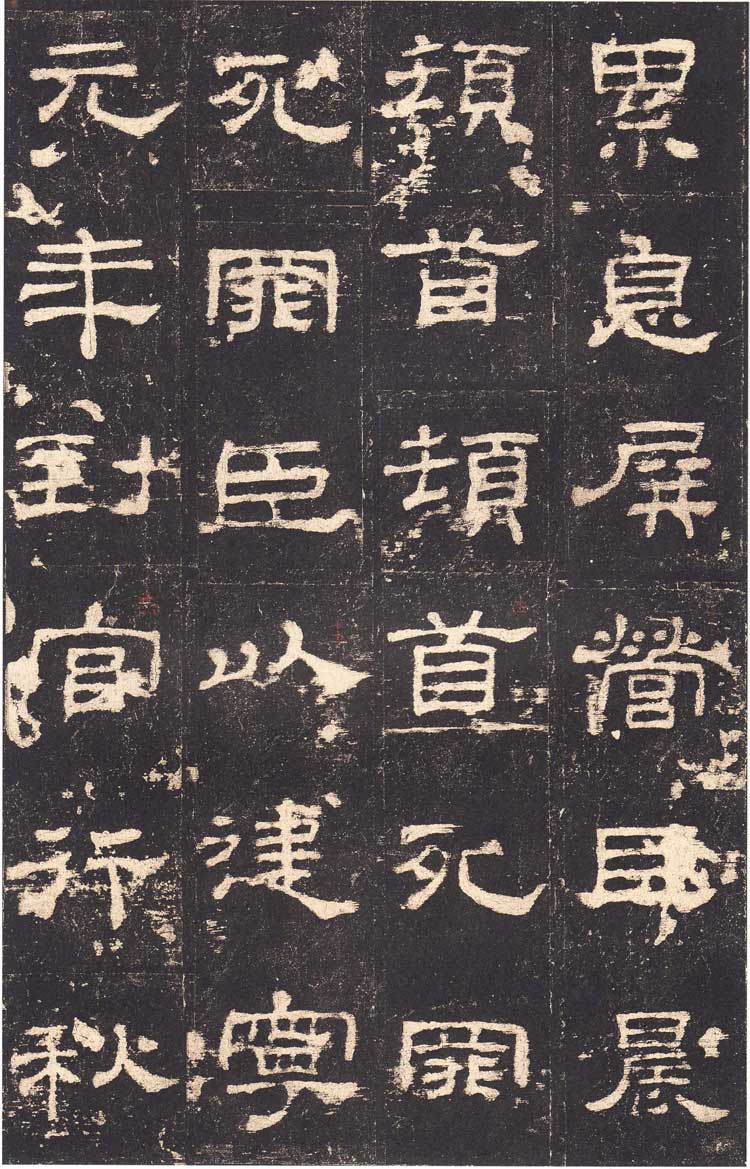 累息屏營臣晨
頓首頓首死罪
死罪臣以建寧
元年到官行秋